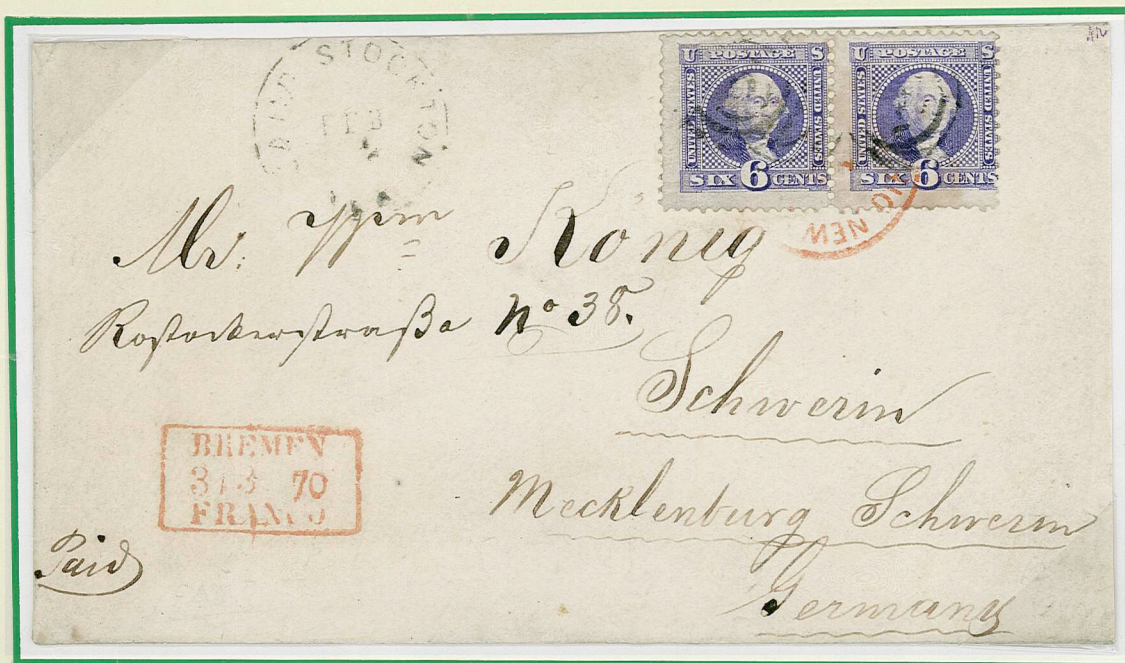 STOCKTON
FEB
U POSTAGE S
UNITED STATES
UNITED STATES
SIX 6 CENTS
U POSTAGE S
UNITED STATES
UNITED STATES
SIX 6 CENTS
NEW
Mr. Wm König
Rostockerstraße No 38.
Schwerin
Mecklenburg Schwerin
Germany
BREMEN
70
FRANCO
Paid